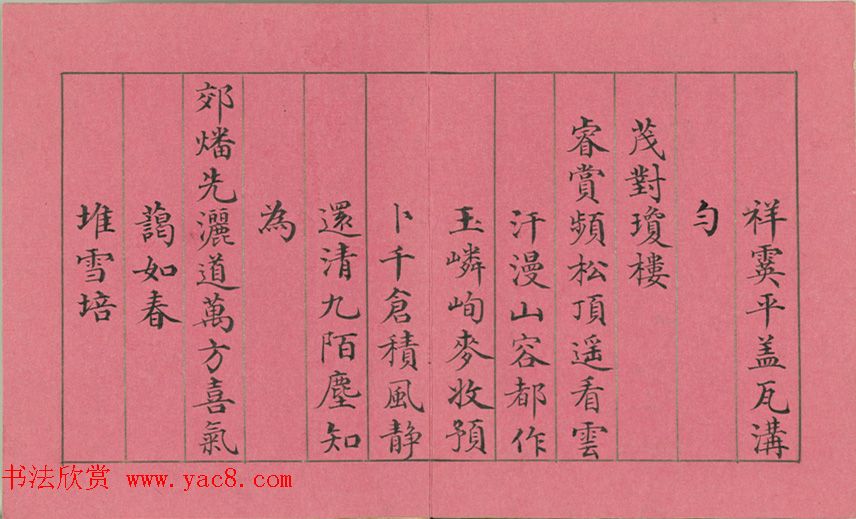 祥霙平盖瓦溝
勻
茂對瓊樓
睿賞頻松頂遥看雲
汗漫山容都作
玉嶙峋麥收預
卜千倉積風静
還清九陌塵知
為
郊燔先灑道萬方喜氣
藹如春
堆雪培
书法欣赏 www.yac8.com